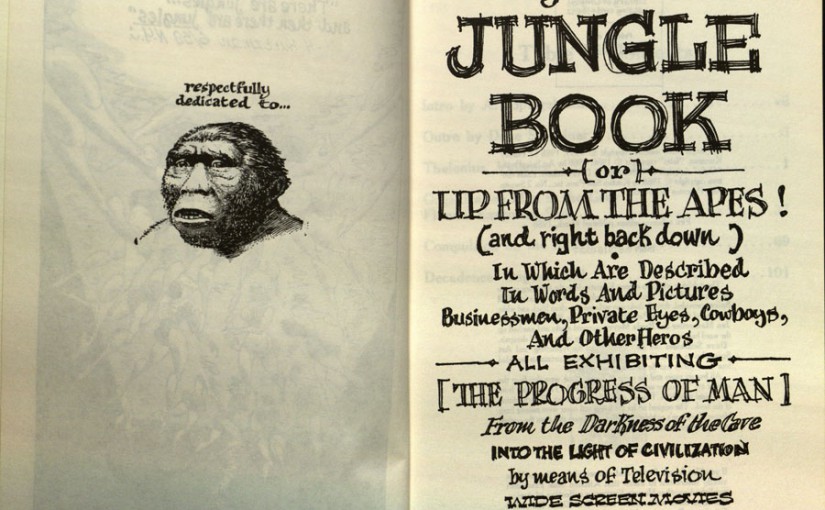 respectfully
dedicated to...
JUNGLE
BOOK
(or)
UP FROM THE APES!
(and right back down)
In Which Are Described
In Words And Pictures
Businessmen, Private Eyes, Cowboys,
And Other Heros
ALL EXHIBITING
[THE PROGRESS OF MAN]
From the Darkness of the Cave
INTO THE LIGHT OF CIVILIZATION
by means of Television
WIDE SCREEN MOVIES